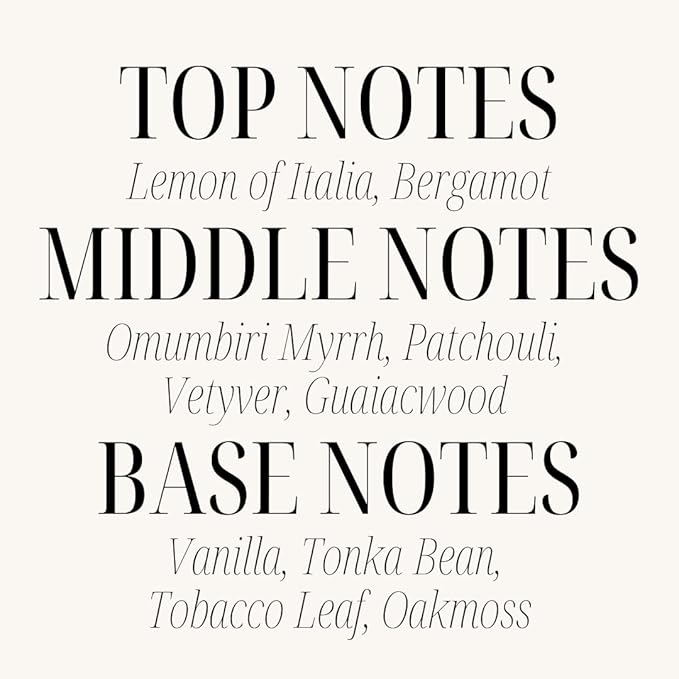 TOP NOTES
Lemon of Italia, Bergamot
MIDDLE NOTES
Omumbiri Myrrh, Patchouli,
Vetyver, Guaiacwood
BASE NOTES
Vanilla, Tonka Bean,
Tobacco Leaf, Oakmoss